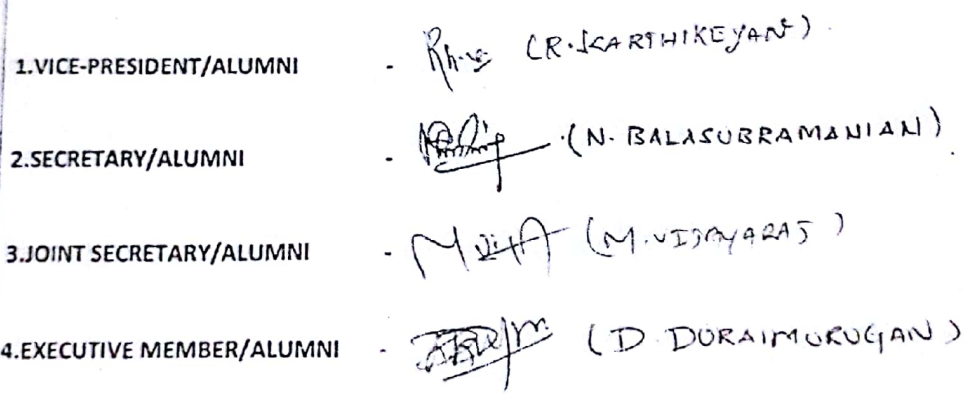 1.VICE-PRESIDENT/ALUMNI - (R.KARTHIKEYAN)
2.SECRETARY/ALUMNI - (N. BALASUBRAMANIAN)
3.JOINT SECRETARY/ALUMNI - (M.VIJAYARAJ)
4.EXECUTIVE MEMBER/ALUMNI - (D. DURAIMURUGAN)